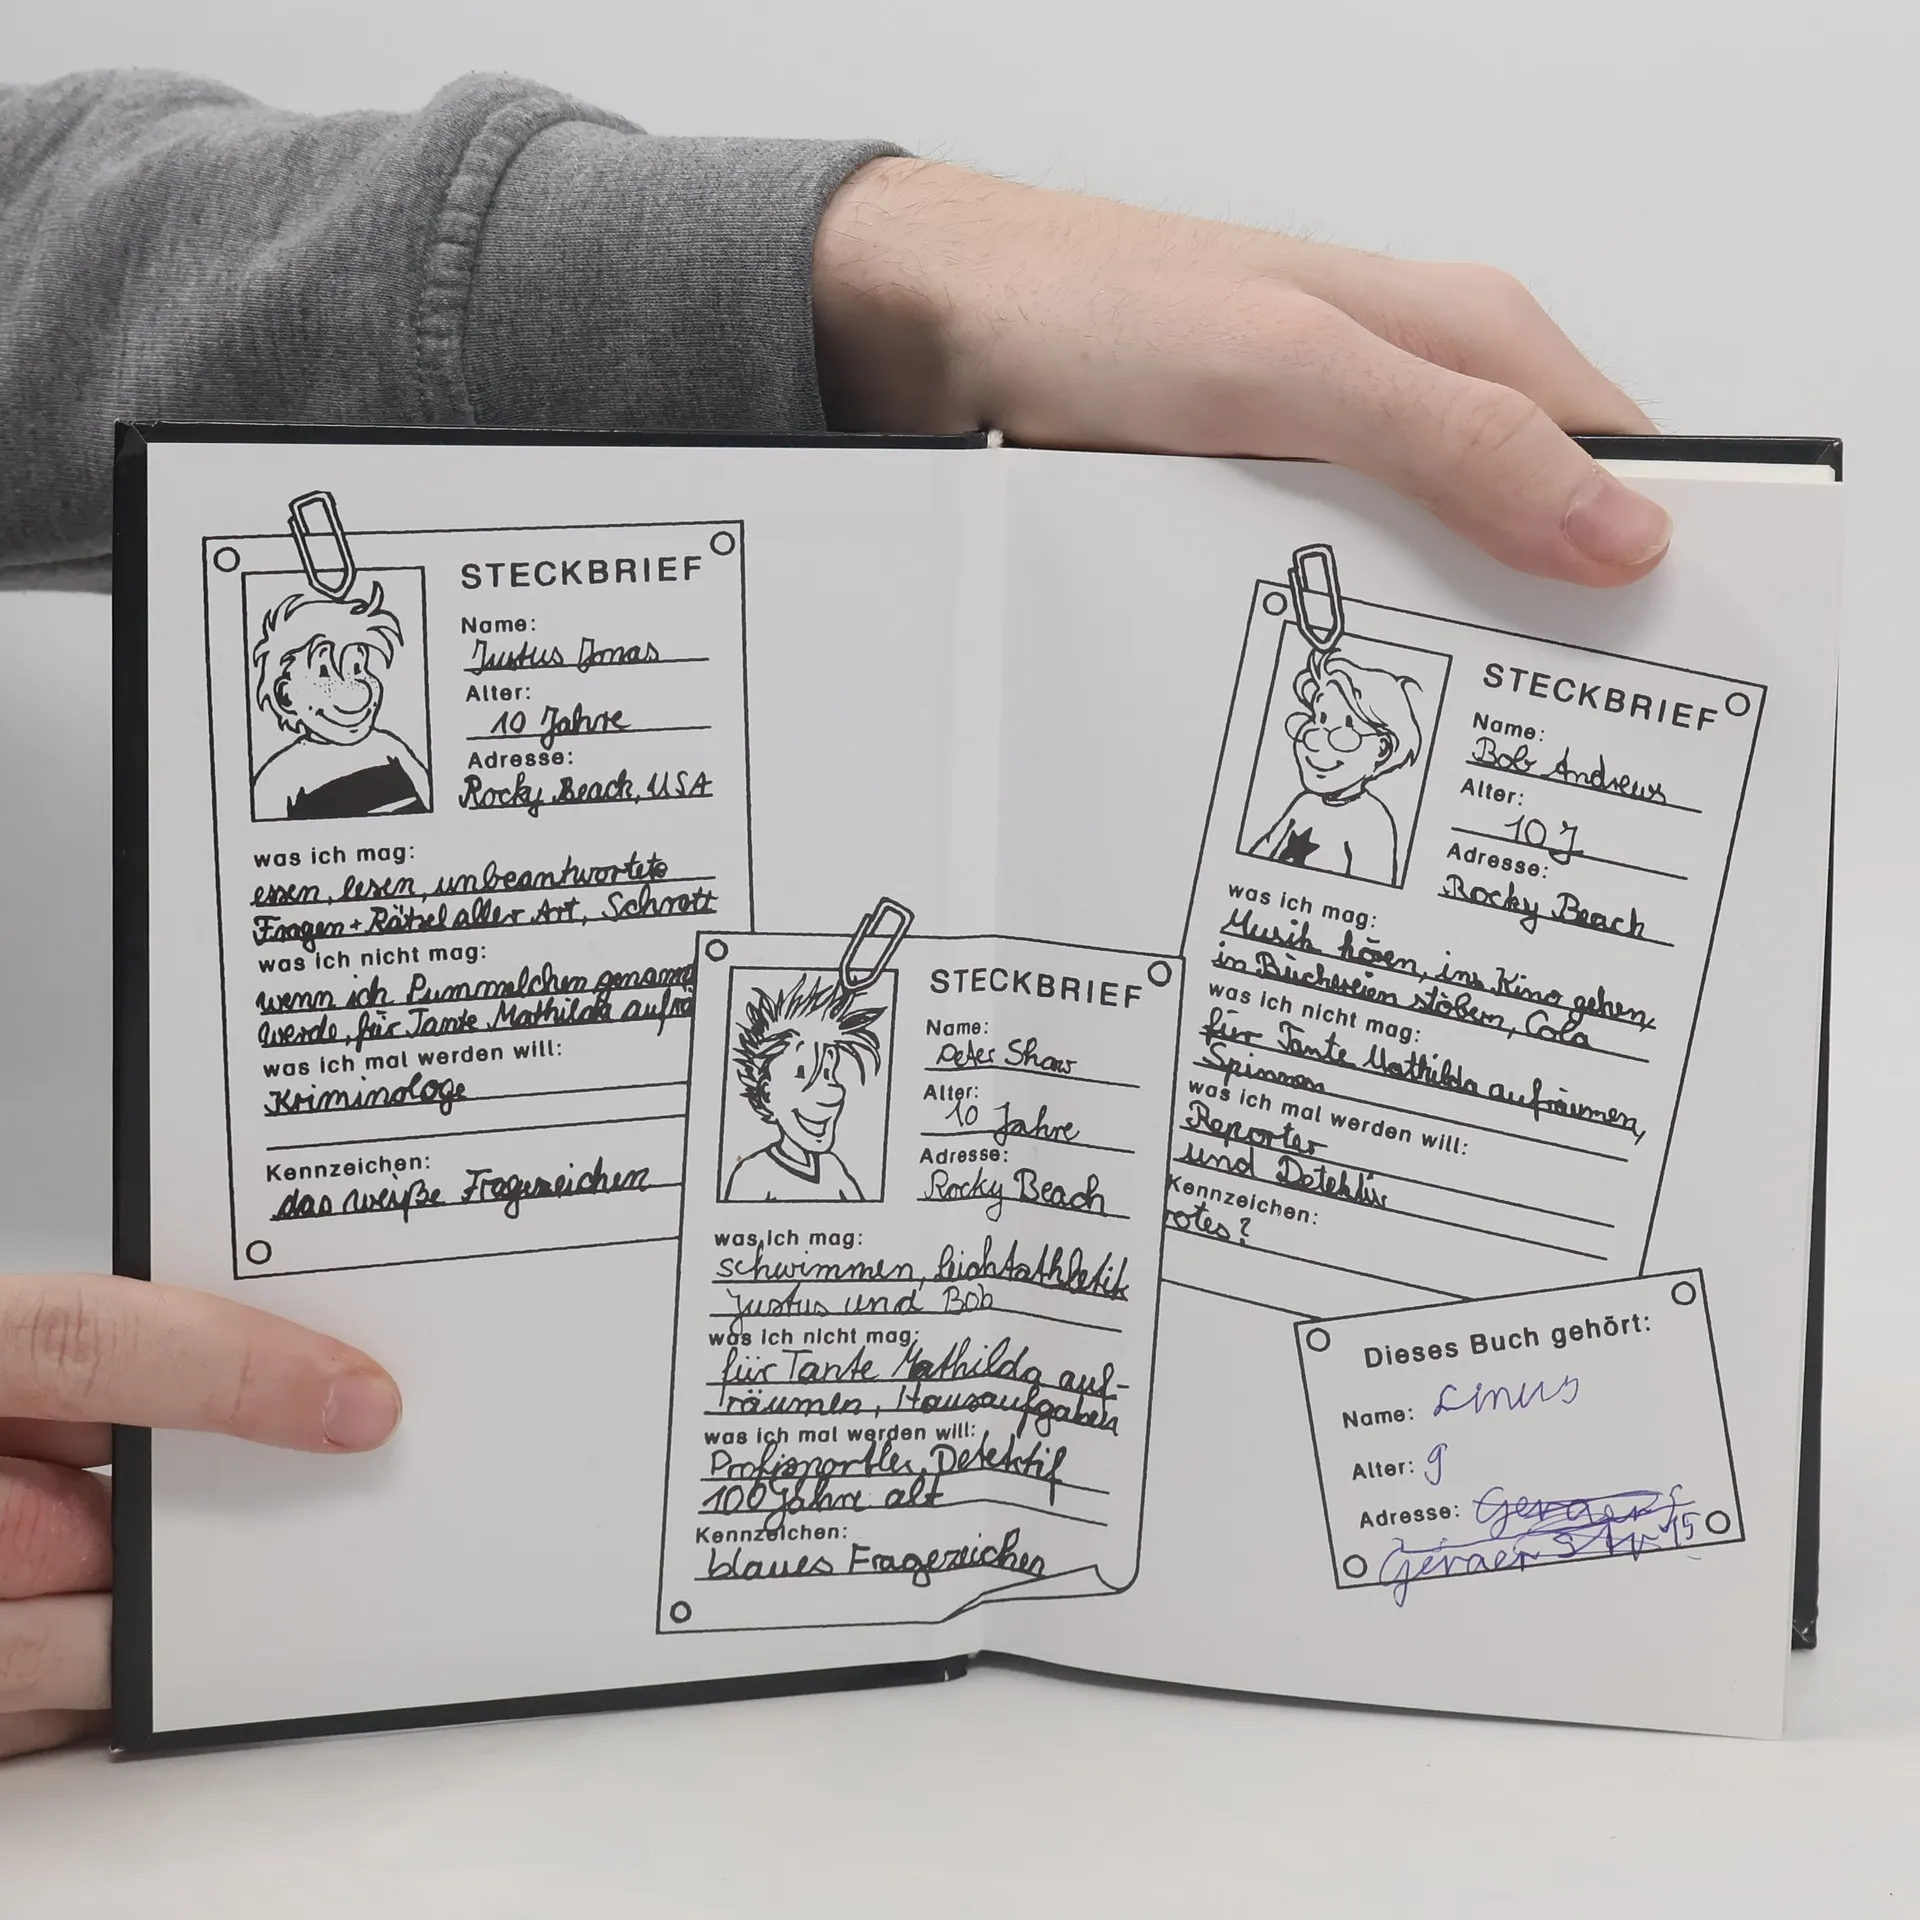 STECKBRIEF
Name:
Justus Jonas
Alter:
10 Jahre
Adresse:
Rocky Beach, USA
was ich mag:
essen, lesen, unbeantwortete
Fragen + Rätsel aller Art, Schrott
was ich nicht mag:
wenn ich Pummelchen genannt
werde, für Tante Mathilda aufrä
was ich mal werden will:
Kriminologe
Kennzeichen:
das weiße Fragezeichen
STECKBRIEF
Name:
Peter Shaw
Alter:
10 Jahre
Adresse:
Rocky Beach
was ich mag:
schwimmen, Leichtathletik
Justus und Bob
was ich nicht mag:
für Tante Mathilda auf-
räumen, Hausaufgaben
was ich mal werden will:
Profisportler, Detektif
100 Jahre alt
Kennzeichen:
blaues Fragezeichen
STECKBRIEF
Name:
Bob Andrews
Alter:
10 J
Adresse:
Rocky Beach
was ich mag:
Musik hören, ins Kino gehen,
in Büchereien stöbern, Cola
was ich nicht mag:
für Tante Mathilda aufräumen,
Spinnen
was ich mal werden will:
Reporter
und Detektiv
Kennzeichen:
rotes ?
Dieses Buch gehört:
Name: Linus
Alter: 9
Adresse: Geraer
Geraer Str 15